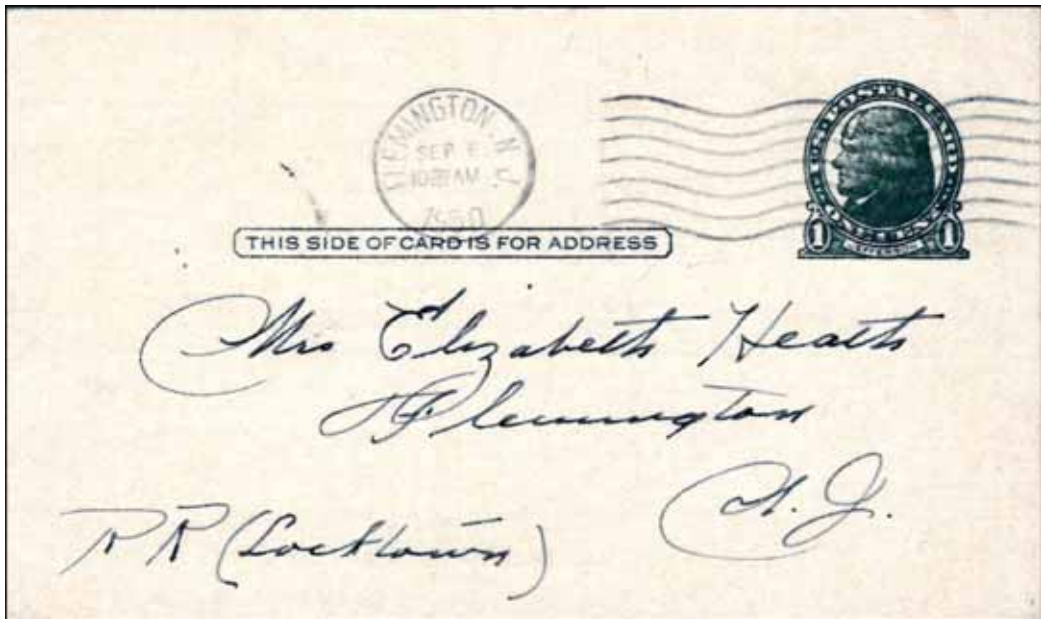 FLEMINGTON, N.J.
SEP 6
10 AM
1950
U.S. POSTAL CARD
ONE CENT
1 JEFFERSON 1
THIS SIDE OF CARD IS FOR ADDRESS
Mrs Elizabeth Heath
Flemington
N. J.
RR (Locktown)